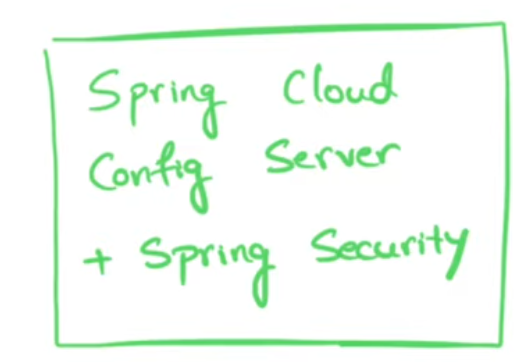 Spring Cloud
Config Server
+ Spring Security